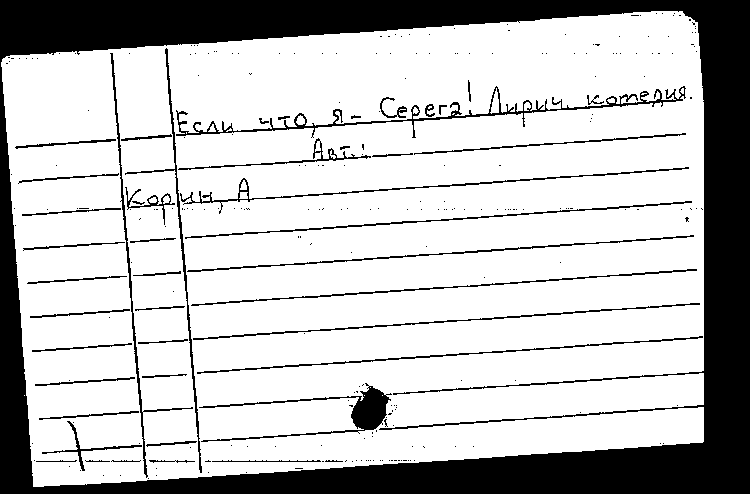 Если что, я - Серега! Лирич. комедия.
Авт.:
Корин, А